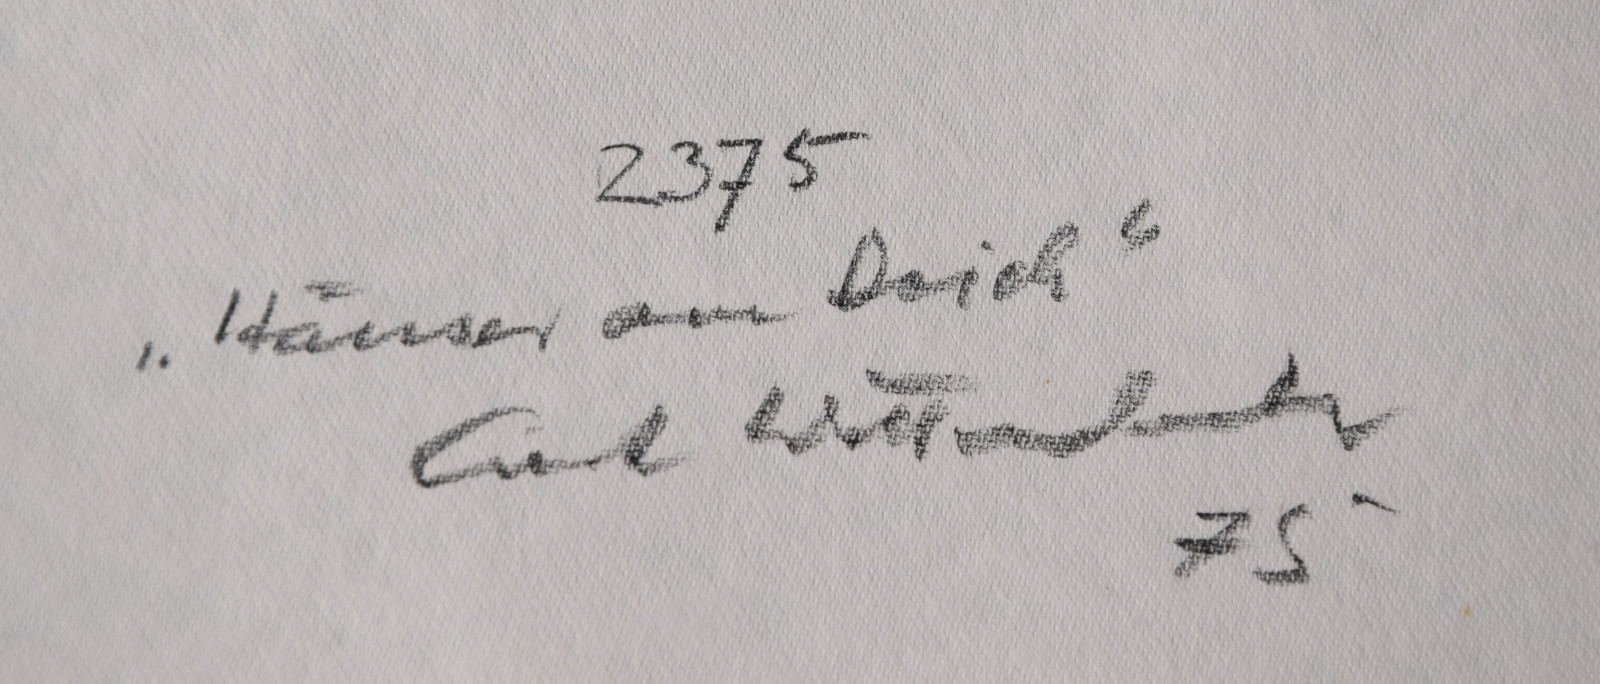 2375
„Häuser am Deich“
Carl
75